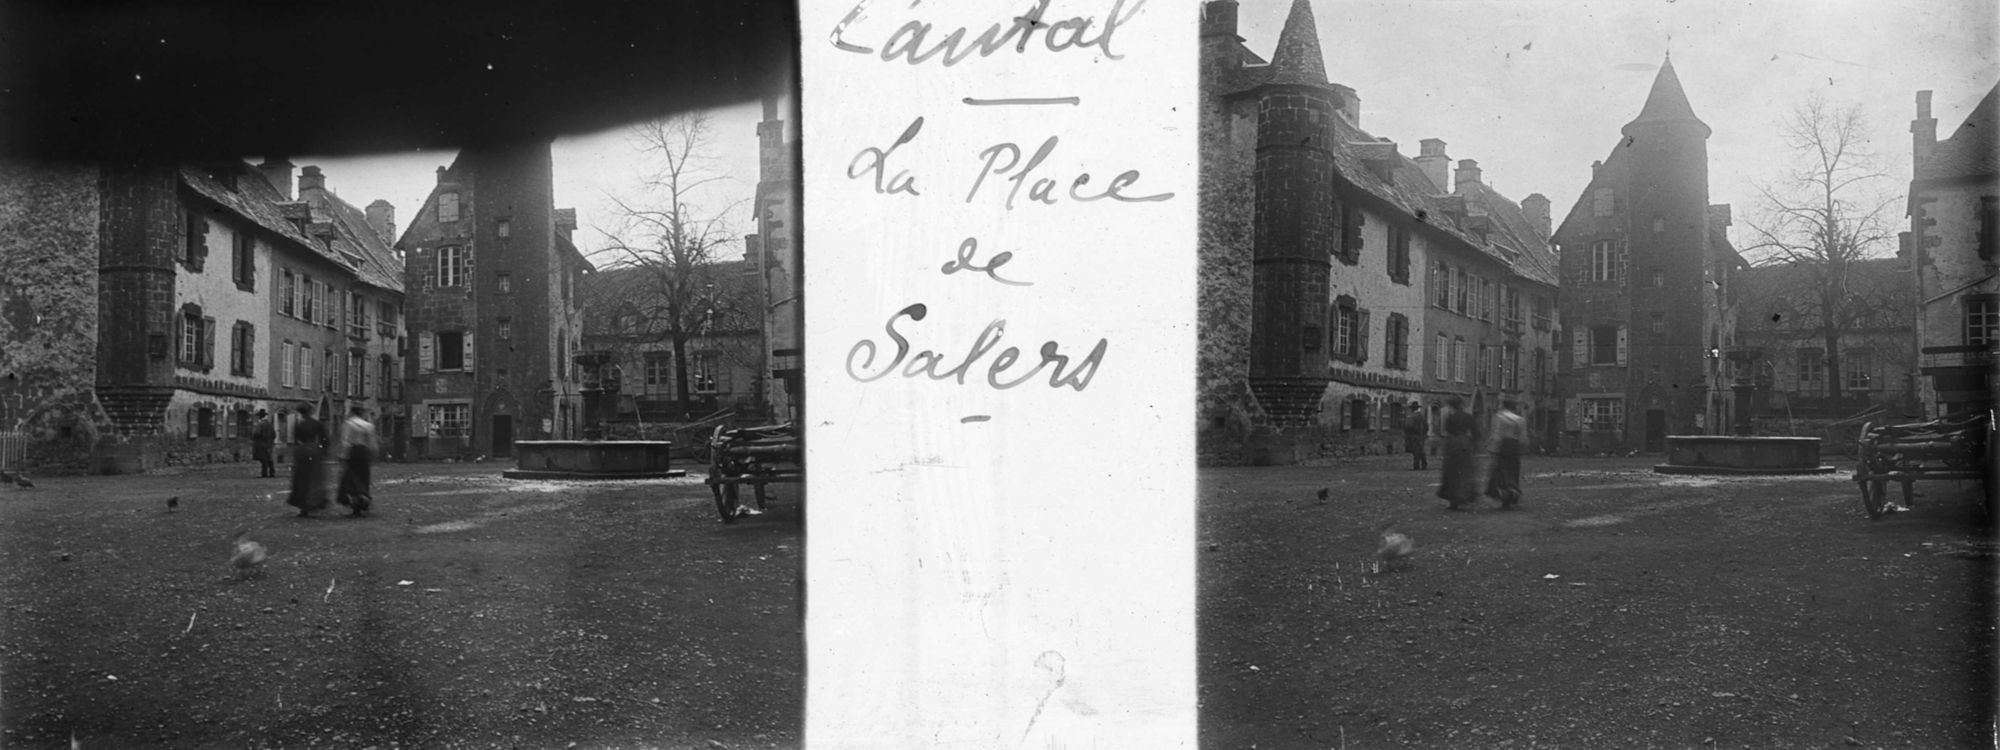 Cantal
La Place
de
Salers